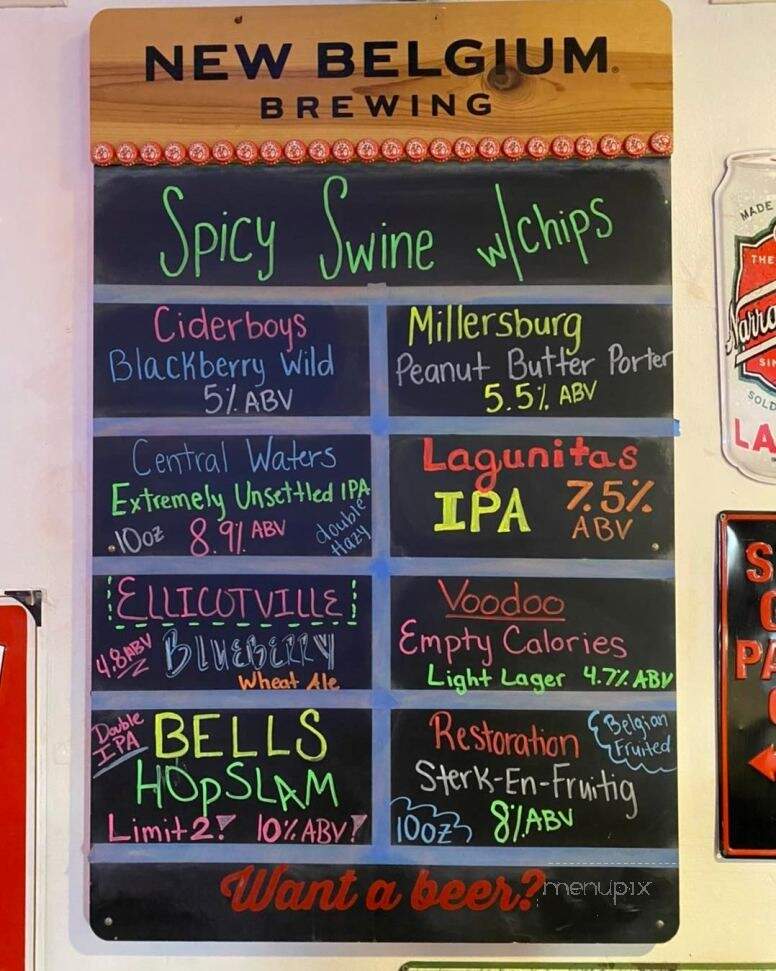 NEW BELGIUM
BREWING
Spicy Swine w/chips
Ciderboys
Blackberry Wild
5% ABV
Millersburg
Peanut Butter Porter
5.5% ABV
Central Waters
Extremely Unsettled IPA
10oz 8.9% ABV
double
Hazy
Lagunitas
IPA 7.5%
ABV
ELLICOTVILLE
4.8ABV BLUEBERRY
Wheat Ale
Voodoo
Empty Calories
Light Lager 4.7% ABV
Double
IPA
BELLS
HOpSLAM
Limit 2! 10% ABV!
Restoration
Belgian
Fruited
Sterk-En-Fruitig
10oz 8% ABV
Want a beer?
menupix
MADE
THE
SOLD
LA
S
PA